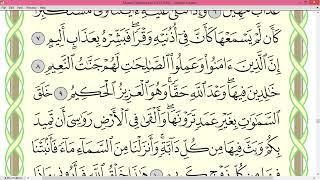 عَذَابٌ مُّهِينٌ ۝٦ وَإِذَا تُتْلَىٰ عَلَيْهِ ءَايَٰتُنَا وَلَّىٰ مُسْتَكْبِرًا
كَأَن لَّمْ يَسْمَعْهَا كَأَنَّ فِىٓ أُذُنَيْهِ وَقْرًا ۖ فَبَشِّرْهُ بِعَذَابٍ أَلِيمٍ ٧
إِنَّ ٱلَّذِينَ ءَامَنُوا۟ وَعَمِلُوا۟ ٱلصَّٰلِحَٰتِ لَهُمْ جَنَّٰتُ ٱلنَّعِيمِ ٨
خَٰلِدِينَ فِيهَا ۖ وَعْدَ ٱللَّهِ حَقًّا ۚ وَهُوَ ٱلْعَزِيزُ ٱلْحَكِيمُ ٩ خَلَقَ
ٱلسَّمَٰوَٰتِ بِغَيْرِ عَمَدٍ تَرَوْنَهَا ۖ وَأَلْقَىٰ فِى ٱلْأَرْضِ رَوَٰسِىَ أَن تَمِيدَ
بِكُمْ وَبَثَّ فِيهَا مِن كُلِّ دَآبَّةٍ ۚ وَأَنزَلْنَا مِنَ ٱلسَّمَآءِ مَآءً فَأَنۢبَتْنَا
فِيهَا مِن كُلِّ زَوْجٍ كَرِيمٍ ١٠ هَٰذَا خَلْقُ ٱللَّهِ فَأَرُونِى مَاذَا